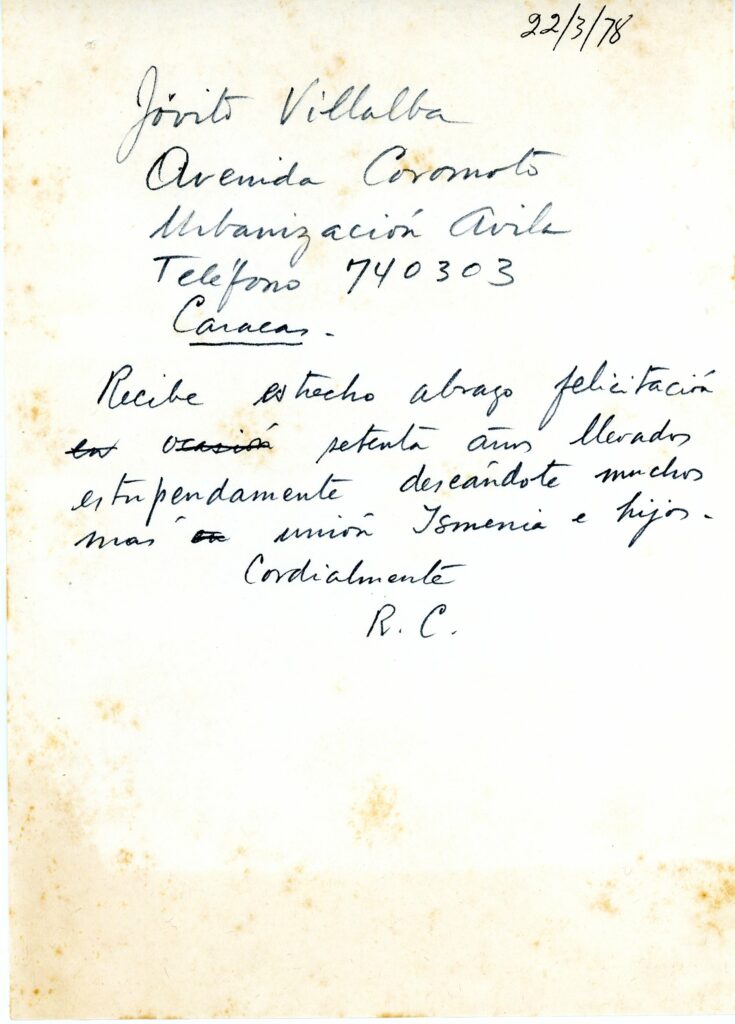 22/3/78
Jóvito Villalba
Avenida Coromoto
Urbanización Avila
Teléfono 740303
Caracas.
Recibe estrecho abrazo felicitación
en ocasión setenta años llevados
estupendamente deseándote muchos
mas en unión Ismenia e hijos.
Cordialmente
R. C.